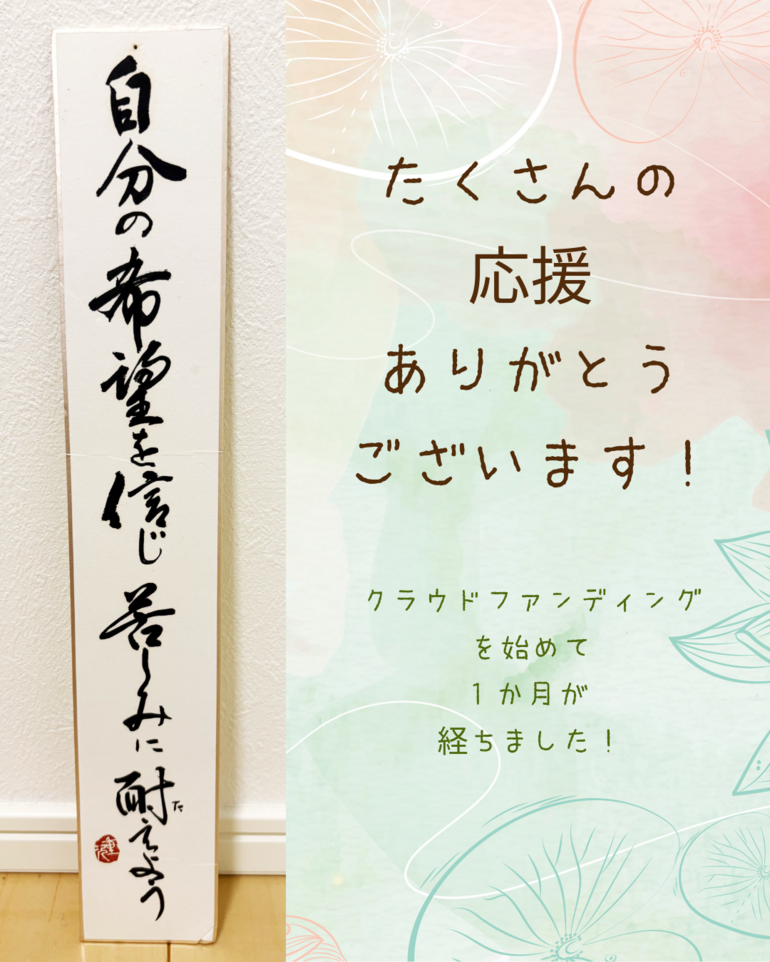 自分の希望を信じ苦しみに耐えよう
た
たくさんの
応援
ありがとう
ございます！
クラウドファンディング
を始めて
１か月が
経ちました！